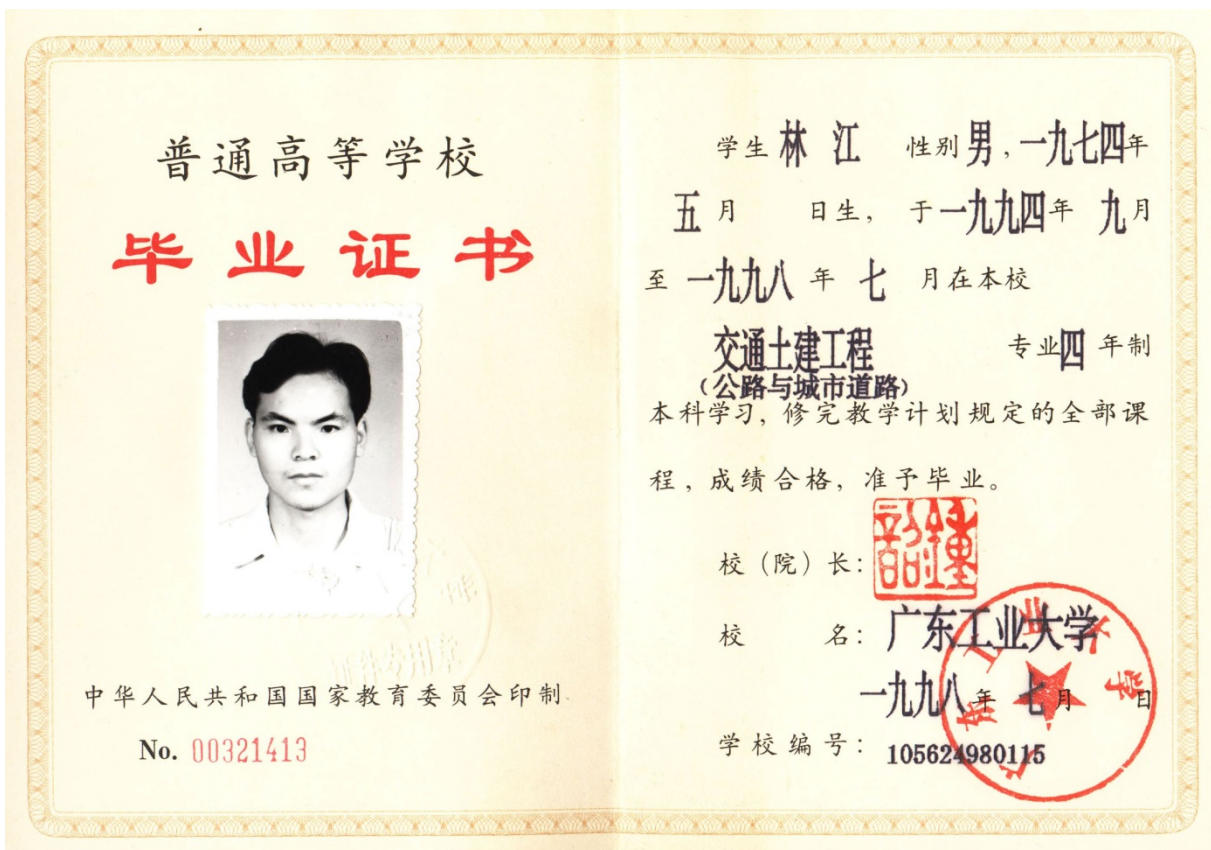 普通高等学校
毕业证书
中华人民共和国国家教育委员会印制
No. 00321413
学生 林 江 性别 男,一九七四年
五月 日生, 于一九九四年 九月
至 一九九八 年 七 月在本校
交通土建工程 专业四 年制
(公路与城市道路)
本科学习, 修完教学计划规定的全部课
程, 成绩合格, 准予毕业。
校(院)长:
校 名: 广东工业大学
一九九八年 七月 日
学校编号: 105624980115
广东工业大学
证件专用章